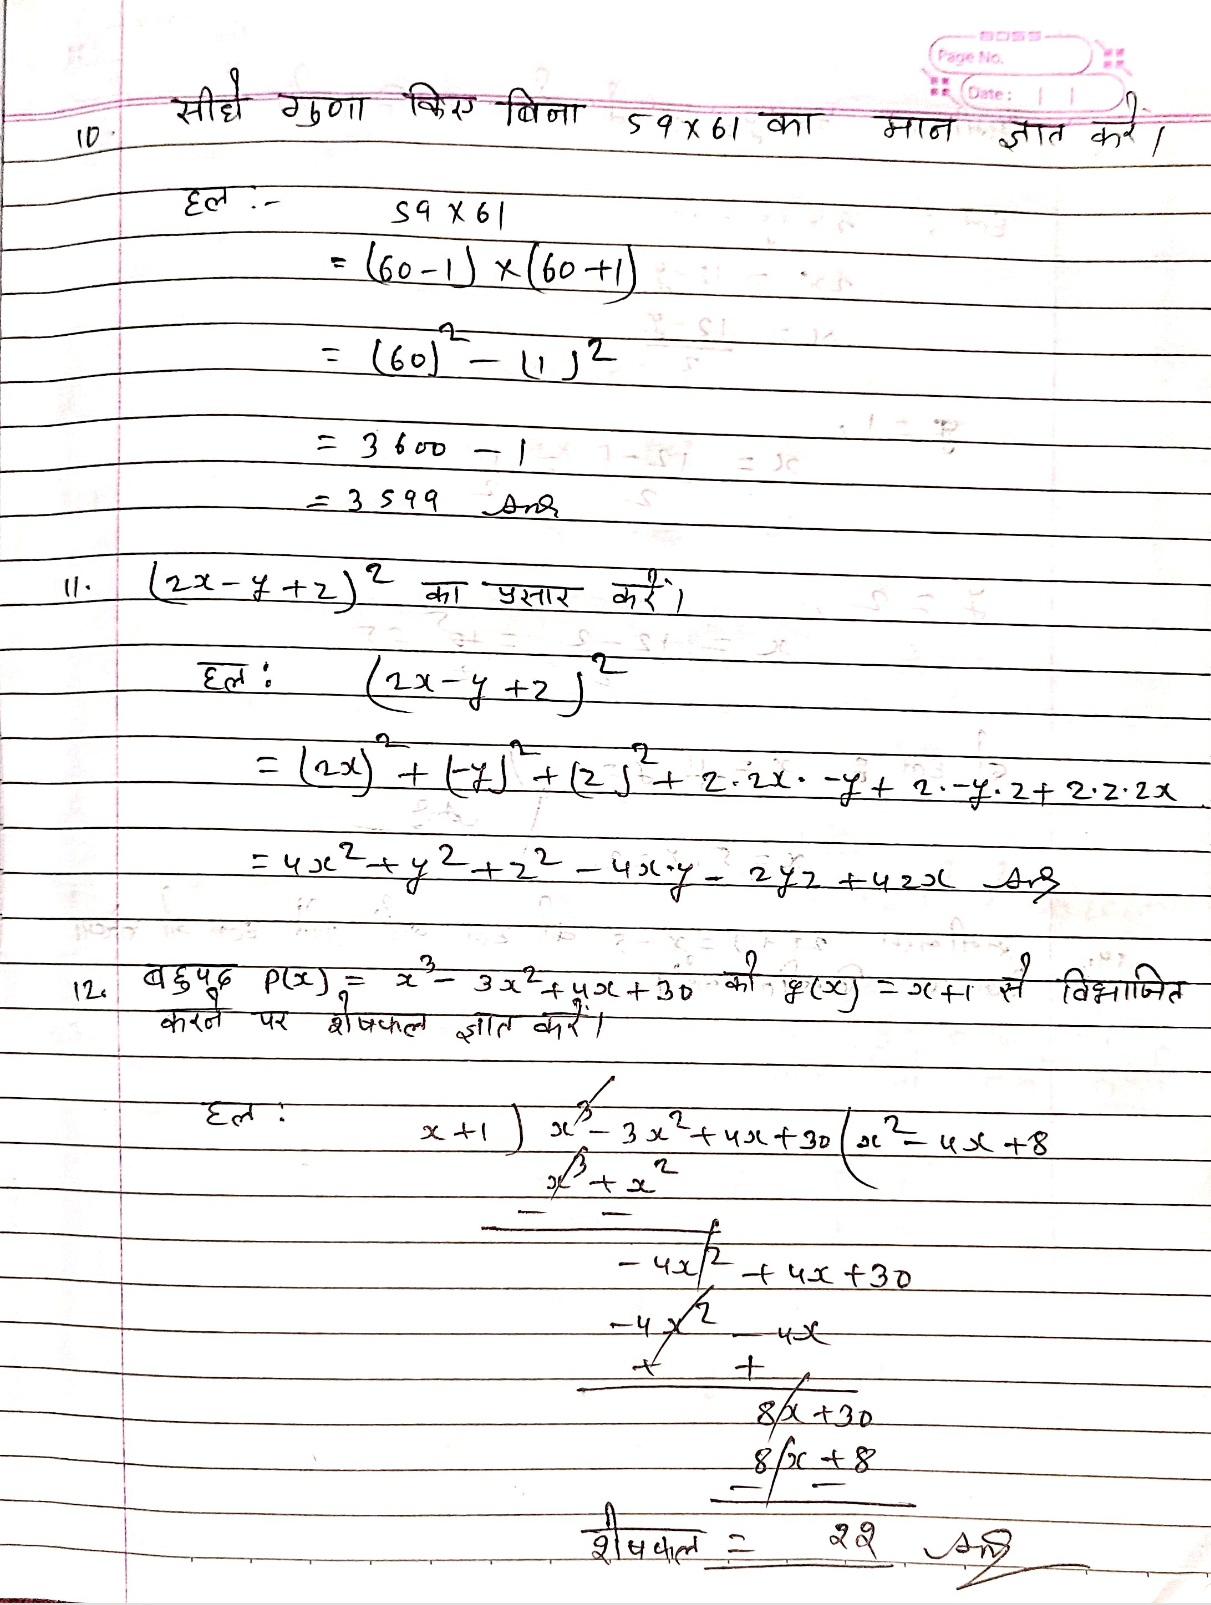 BOSS
Page No.
Date:
10. सीधे गुणा किए बिना 59 x 61 का मान ज्ञात करें।
हल :- 59 x 61
= (60-1) x (60+1)
= (60)² - (1)²
= 3600 - 1
= 3599 Ans
11. (2x-y+z)² का प्रसार करें।
हल : (2x-y+z)²
= (2x)² + (-y)² + (z)² + 2.2x. -y + 2.-y.z + 2.z.2x
= 4x² + y² + z² - 4x.y - 2yz + 4zx Ans
12. बहुपद p(x) = x³ - 3x² + 4x + 30 को g(x) = x+1 से विभाजित
करने पर शेषफल ज्ञात करें।
हल : x+1 ) x³ - 3x² + 4x + 30 ( x² - 4x + 8
x³ + x²
- -
- 4x² + 4x + 30
-4x² - 4x
+ +
8x + 30
8x + 8
- -
शेषफल = 22 Ans